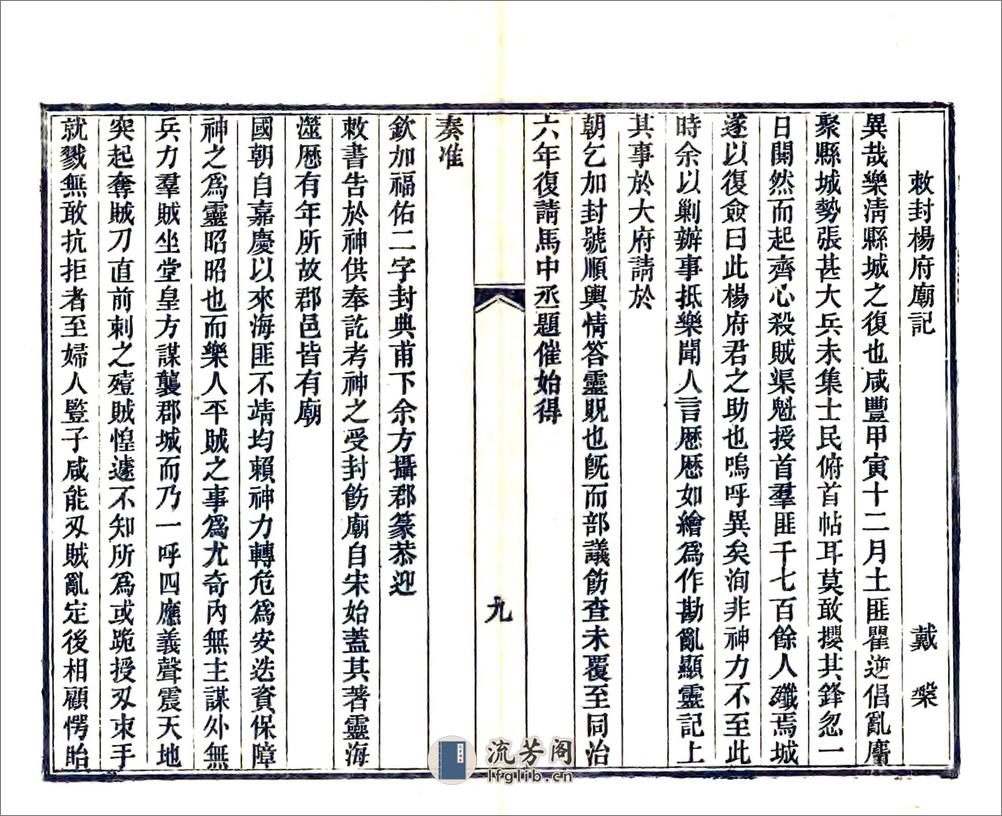 敕封楊府廟記　戴槃
異哉樂淸縣城之復也咸豐甲寅十二月土匪瞿逆倡亂麕
聚縣城勢張甚大兵未集士民俯首帖耳莫敢攖其鋒忽一
日鬨然而起齊心殺賊渠魁授首羣匪千七百餘人殲焉城
遂以復僉曰此楊府君之助也嗚呼異矣洵非神力不至此
時余以剿辦事抵樂聞人言歷歷如繪爲作勘亂顯靈記上
其事於大府請於
朝乞加封號順輿情答靈貺也旣而部議飭查未覆至同治
六年復請馬中丞題催始得
九
奏准
欽加福佑二字封典甫下余方攝郡篆恭迎
敕書告於神供奉訖考神之受封飭廟自宋始蓋其著靈海
澨歷有年所故郡邑皆有廟
國朝自嘉慶以來海匪不靖均賴神力轉危爲安迭資保障
神之爲靈昭昭也而樂人平賊之事爲尤奇內無主謀外無
兵力羣賊坐堂皇方謀襲郡城而乃一呼四應義聲震天地
突起奪賊刀直前刺之殪賊惶遽不知所爲或跪授刄束手
就戮無敢抗拒者至婦人豎子咸能刄賊亂定後相顧愕眙
流芳阁
lfglib.cn